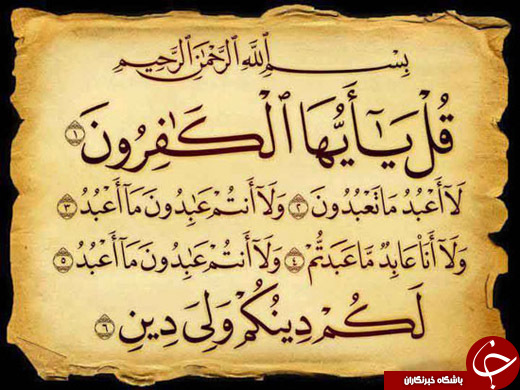 بِسْمِ ٱللَّهِ ٱلرَّحْمَٰنِ ٱلرَّحِيمِ
قُلْ يَٰٓأَيُّهَا ٱلْكَٰفِرُونَ ١
لَآ أَعْبُدُ مَا تَعْبُدُونَ ٢ وَلَآ أَنتُمْ عَٰبِدُونَ مَآ أَعْبُدُ ٣
وَلَآ أَنَا۠ عَابِدٌ مَّا عَبَدتُّمْ ٤ وَلَآ أَنتُمْ عَٰبِدُونَ مَآ أَعْبُدُ ٥
لَكُمْ دِينُكُمْ وَلِىَ دِينِ ٦
باشگاه خبرنگاران